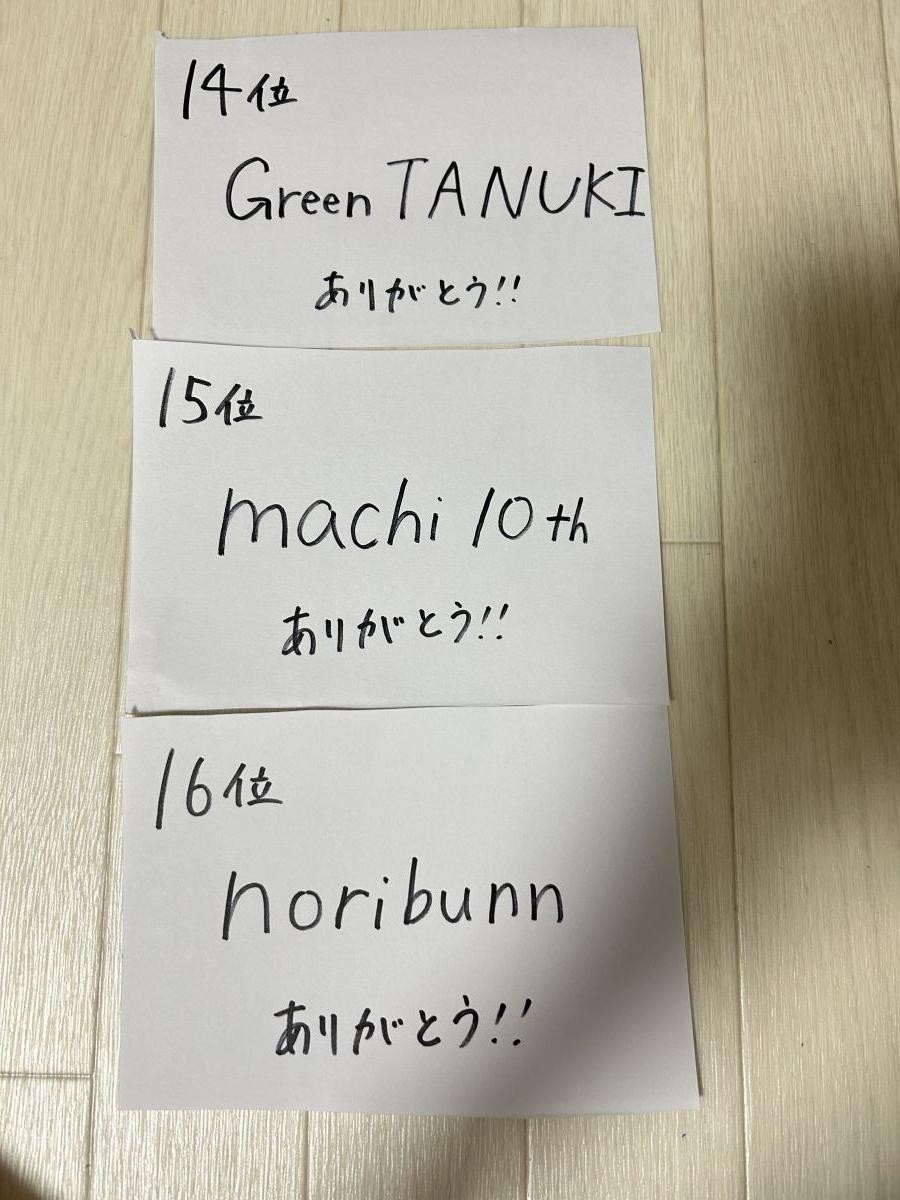 14位
Green TANUKI
ありがとう!!
15位
machi 10th
ありがとう!!
16位
noribunn
ありがとう!!